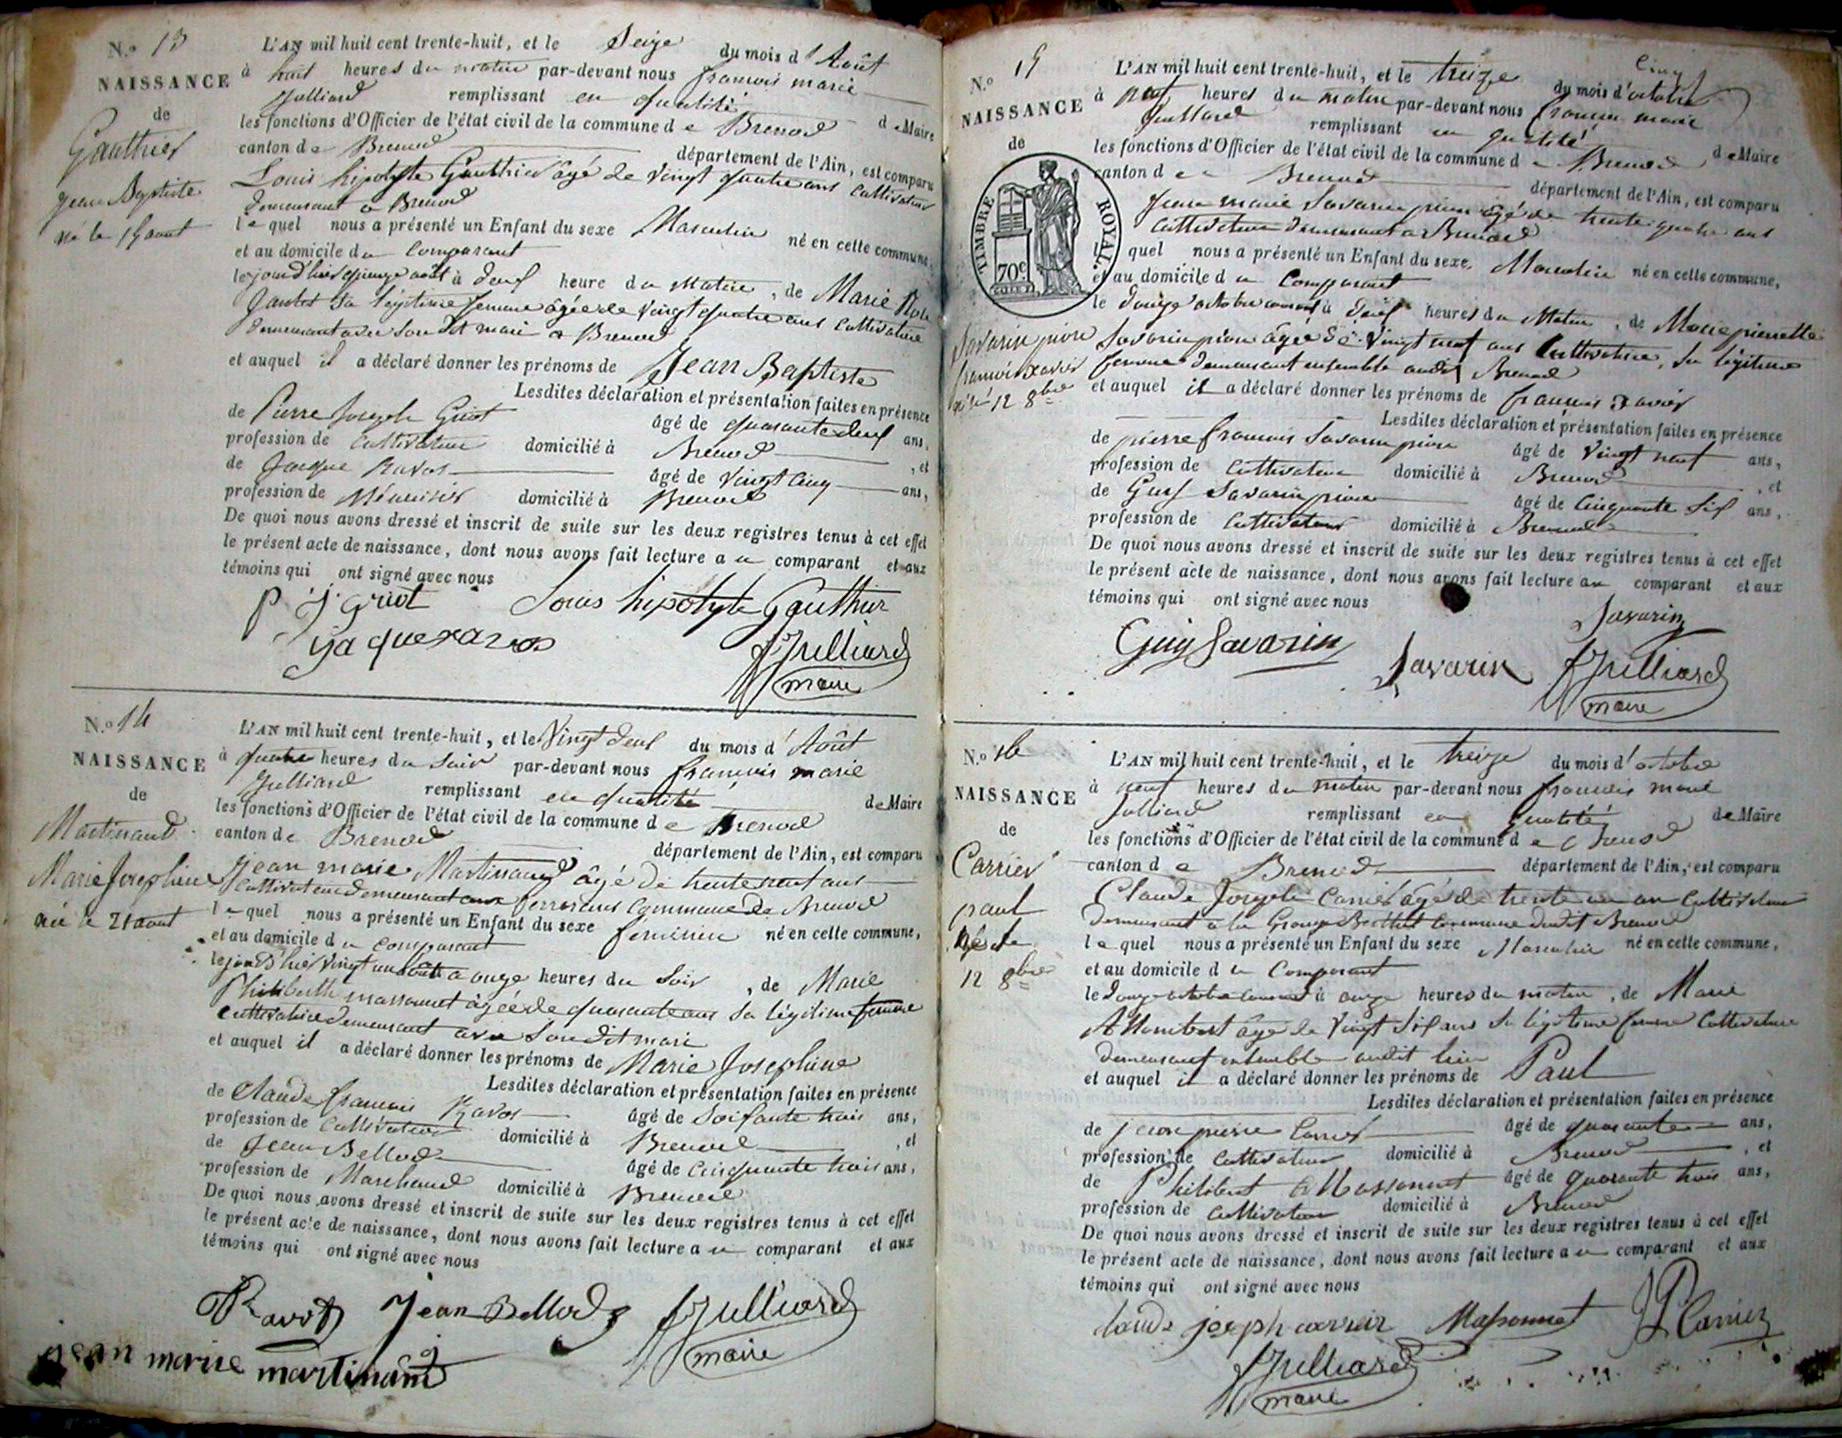 N.º 13
NAISSANCE
de
Gauthier
Jean Baptiste
né le 15 aout
L'AN mil huit cent trente-huit, et le Seize du mois d'Août
à huit heures du matin par-devant nous françois marie
Julliard remplissant en qualité de Maire
les fonctions d'Officier de l'état civil de la commune de Brenod
canton de Brenod département de l'Ain, est comparu
Louis hipolyte Gauthier âgé de vingt quatre ans cultivateur
demeurant à Brenod
lequel nous a présenté un Enfant du sexe Masculin né en cette commune,
et au domicile du comparant
le jour d'hier quinze août à deux heure du matin, de Marie
sa légitime femme âgée de vingt quatre ans cultivatrice
demeurant avec son dit mari à Brenod
et auquel il a déclaré donner les prénoms de Jean Baptiste
Lesdites déclaration et présentation faites en présence
de Pierre Joseph Griot âgé de quarante deux ans,
profession de cultivateur domicilié à Brenod, et
de Jacque Ravos âgé de vingt cinq ans,
profession de Menuisier domicilié à Brenod
De quoi nous avons dressé et inscrit de suite sur les deux registres tenus à cet effet
le présent acte de naissance, dont nous avons fait lecture au comparant et aux
témoins qui ont signé avec nous
P J Griot Louis hipolyte Gauthier
jaque ravos Julliard
maire
N.º 14
NAISSANCE
de
Martinand
Marie Josephine
née le 21 aout
L'AN mil huit cent trente-huit, et le Vingt deux du mois d'Août
à quatre heures du Soir par-devant nous françois marie
Julliard remplissant en qualité de Maire
les fonctions d'Officier de l'état civil de la commune de Brenod
canton de Brenod département de l'Ain, est comparu
jean marie Martinand âgé de trente neuf ans
cultivateur demeurant commune de Brenod
lequel nous a présenté un Enfant du sexe feminin né en cette commune,
et au domicile du comparant
le jour d'hier vingt un août à onze heures du Soir, de Marie
Philiberthe massonnet âgée de quarante ans sa légitime femme
cultivatrice demeurant avec son dit mari
et auquel il a déclaré donner les prénoms de Marie Josephine
Lesdites déclaration et présentation faites en présence
de Claude françois Ravos âgé de Soixante trois ans,
profession de cultivateur domicilié à Brenod, et
de Jean Bellod âgé de Cinquante trois ans,
profession de Marchand domicilié à Brenod
De quoi nous avons dressé et inscrit de suite sur les deux registres tenus à cet effet
le présent acte de naissance, dont nous avons fait lecture au comparant et aux
témoins qui ont signé avec nous
Jean Bellod Julliard
jean marie martinand maire
N.º 15
NAISSANCE
de
TIMBRE ROYAL.
70c
Savarin pivre
francois xavier
né le 12 8bre
L'AN mil huit cent trente-huit, et le treize du mois d'octobre
à neuf heures du matin par-devant nous francois marie
Julliard remplissant en qualité de Maire
les fonctions d'Officier de l'état civil de la commune de Brenod
canton de Brenod département de l'Ain, est comparu
Jean marie Savarin pivre âgé de trente quatre ans
cultivateur demeurant à Brenod
lequel nous a présenté un Enfant du sexe Masculin né en cette commune,
et au domicile du Comparant
le douze octobre courant à deux heures du Matin, de Marie pierrette
Savarin pivre âgée de vingt neuf ans Cultivatrice, sa légitime
femme demeurant ensemble audit Brenod
et auquel il a déclaré donner les prénoms de francois xavier
Lesdites déclaration et présentation faites en présence
de pierre francois Savarin pivre âgé de vingt neuf ans,
profession de Cultivateur domicilié à Brenod, et
de Guy Savarin pivre âgé de Cinquante Six ans,
profession de Cultivateur domicilié à Brenod
De quoi nous avons dressé et inscrit de suite sur les deux registres tenus à cet effet
le présent acte de naissance, dont nous avons fait lecture au comparant et aux
témoins qui ont signé avec nous
Savarin
Guy Savarin Savarin Julliard
maire
N.º 16
NAISSANCE
de
Carrier
paul
né le
12 8bre
L'AN mil huit cent trente-huit, et le treize du mois d'octobre
à neuf heures du matin par-devant nous francois marie
Julliard remplissant en qualité de Maire
les fonctions d'Officier de l'état civil de la commune de Brenod
canton de Brenod département de l'Ain, est comparu
Claude Joseph Carrier âgé de trente un an Cultivateur
demeurant à la Grange commune dudit Brenod
lequel nous a présenté un Enfant du sexe Masculin né en cette commune,
et au domicile du Comparant
le douze octobre courant à onze heures du matin, de Marie
âgé de vingt Six ans sa légitime femme Cultivatrice
demeurant ensemble audit lieu
et auquel il a déclaré donner les prénoms de Paul
Lesdites déclaration et présentation faites en présence
de jean pierre Carrier âgé de quarante ans,
profession de Cultivateur domicilié à Brenod, et
de Philibert Massonnet âgé de quarante trois ans,
profession de Cultivateur domicilié à Brenod
De quoi nous avons dressé et inscrit de suite sur les deux registres tenus à cet effet
le présent acte de naissance, dont nous avons fait lecture au comparant et aux
témoins qui ont signé avec nous
Claude joseph carrier Massonnet JP Carrier
Julliard
maire